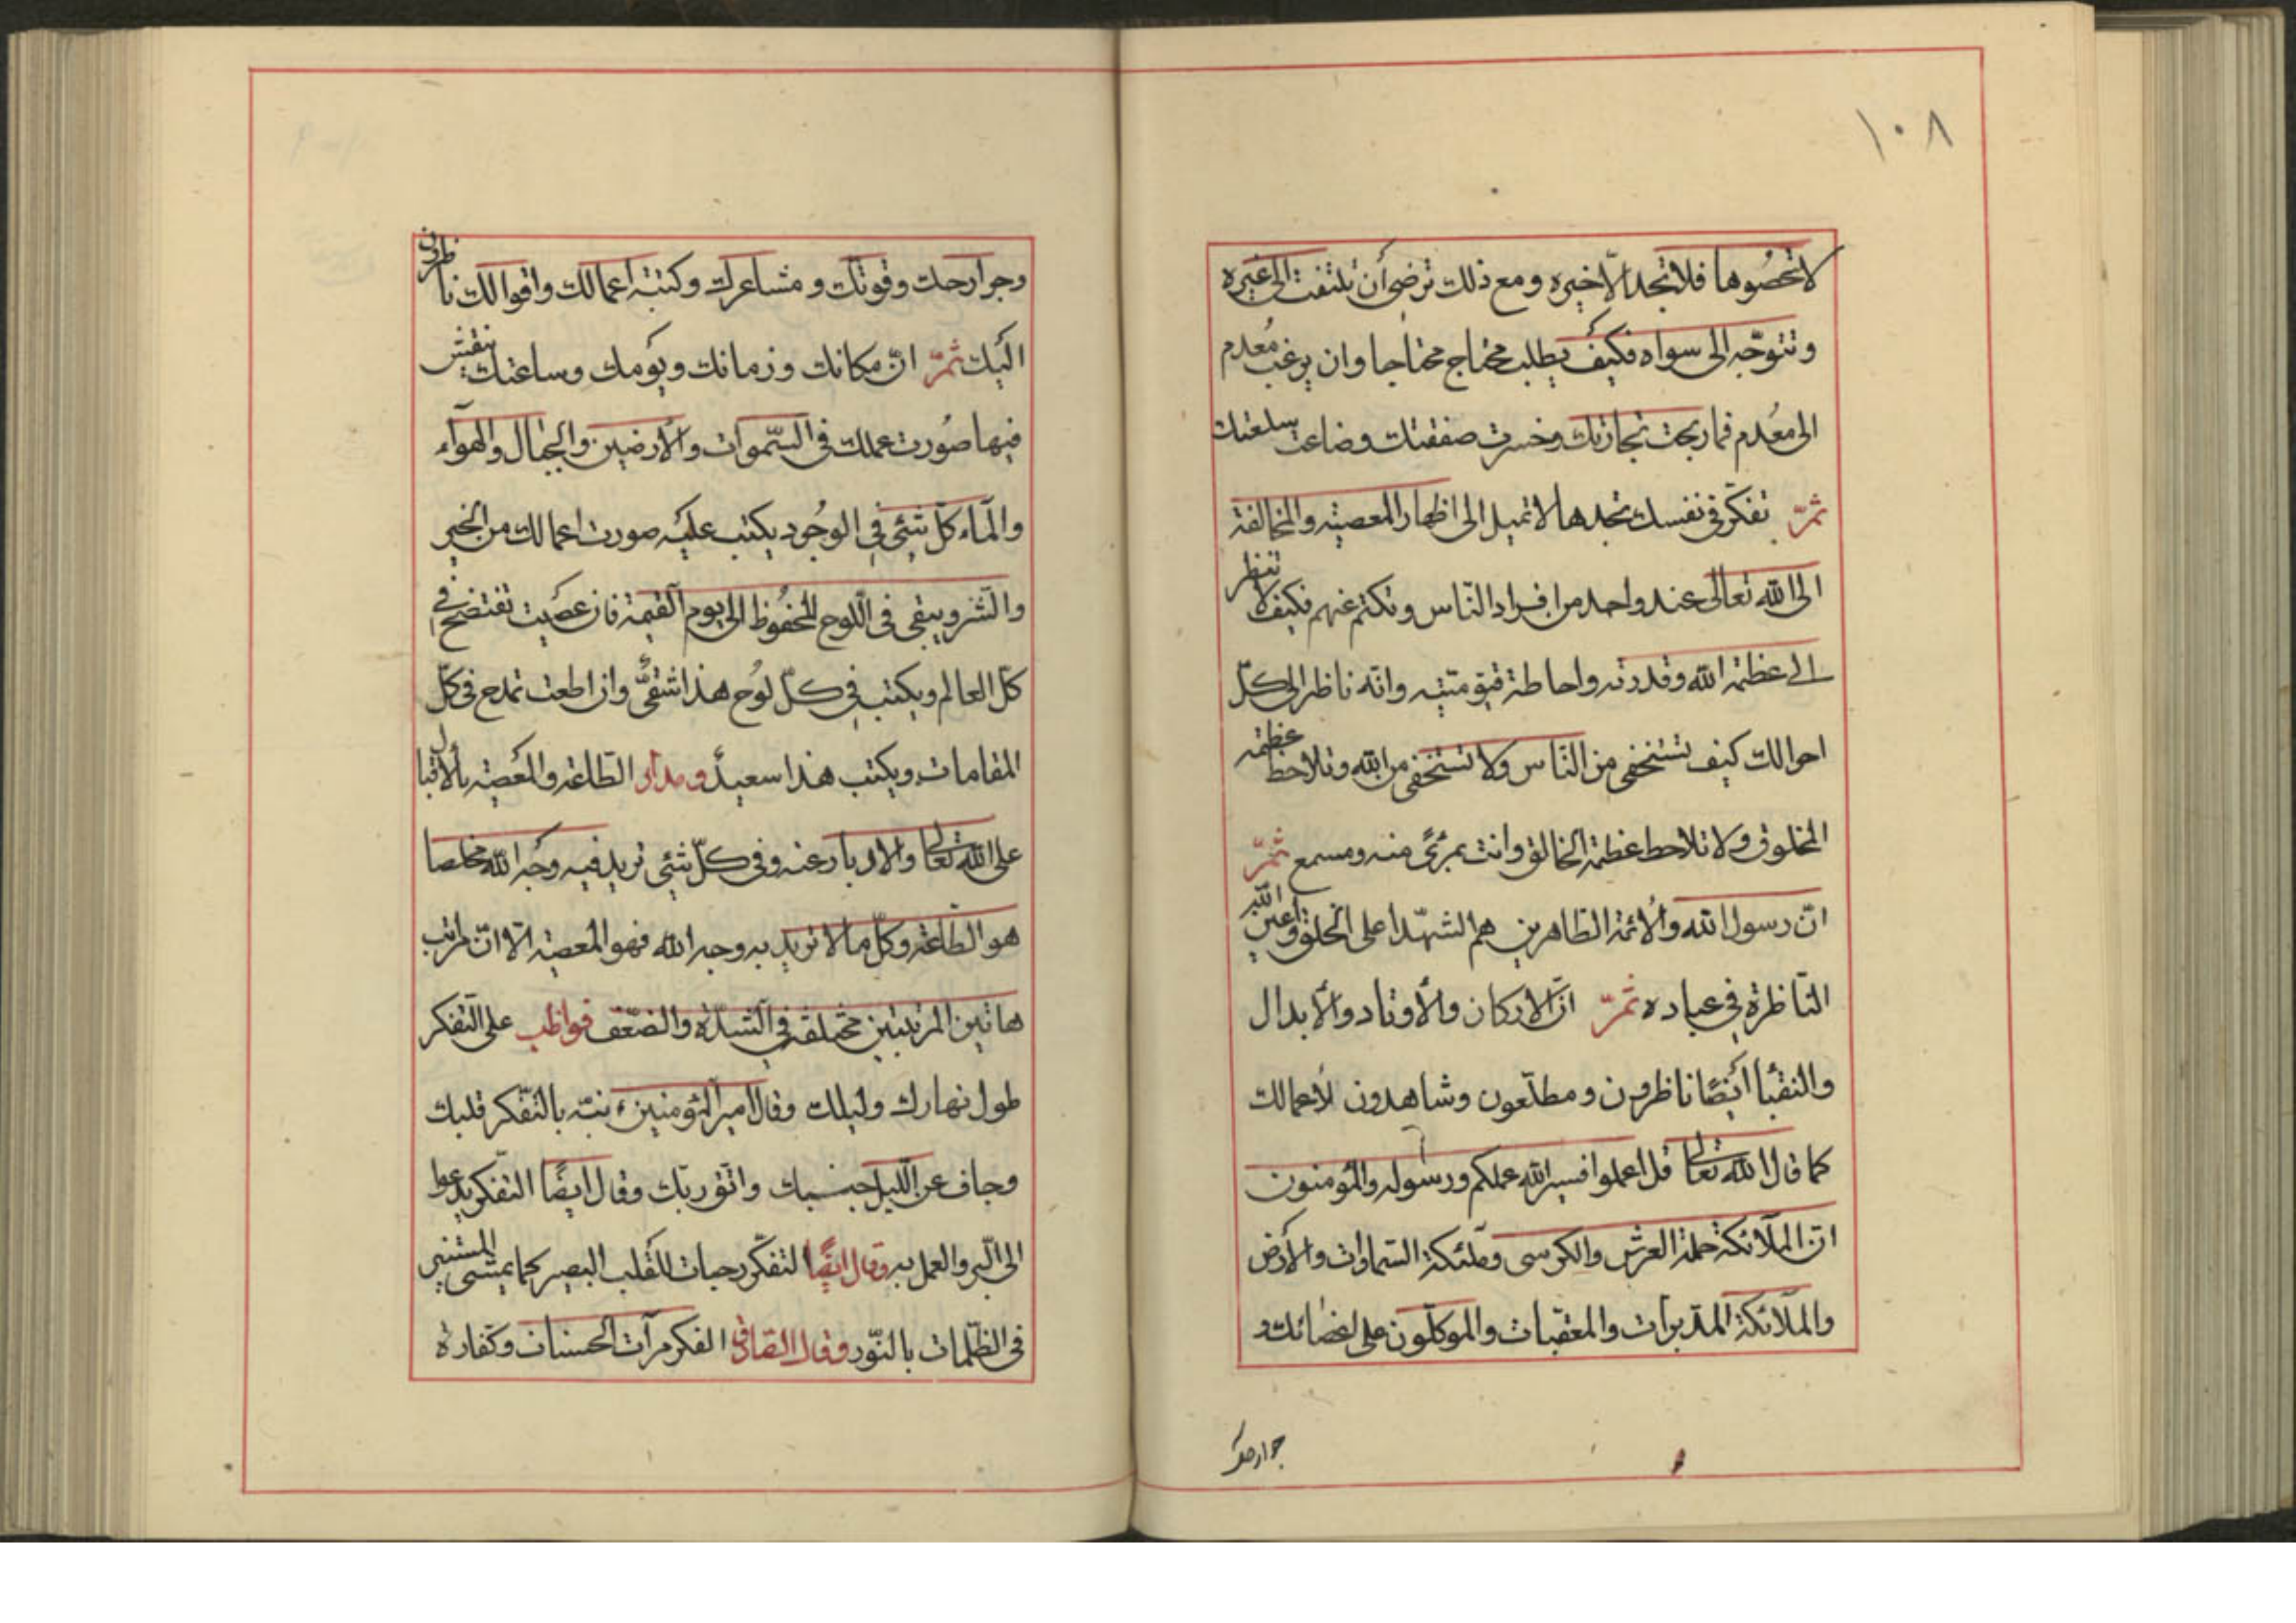 ١٠٨
لا تحصُوها فلا تجد الّا خيره ومع ذلك ترضى أن تلتفت الى غيره
وتتوجّه الى سواه فكيف يطلب محتاج محتاجا وان يرغب مُعدم
الى مُعدم فما ربحت تجارتك وخسرت صفقتك وضاعت سلعتك
ثمّ تفكّر فى نفسك تجدها لا تميل الى اظهار المعصيته والمخالفة
الى الله تعالى عند واحد من افراد النّاس وتكتم عنهم فكيف لا تنظر
الى عظمة الله وقدرته واحاطة قيّوميّته وانّه ناظر الى كلّ
احوالك كيف تستخفى من النّاس ولا تستخفى من الله وتلاحظ عظمة
المخلوق ولا تلاحظ عظمة الخالق وانت بمرئً منه ومسمع ثمّ
انّ رسول الله والأئمة الطّاهرين هم الشهّدا على الخلق واعين الله
النّاظرة فى عباده ثمّ انّ الأركان والأوتاد والأبدال
والنقبأ أيضًا ناظرون ومطلّعون وشاهدون لأعمالك
كما قال الله تعالى قل اعملوا فسيرالله عملكم ورسوله والمؤمنون
انّ الملآئكة حملة العرش والكرسى وملئكة السّماوات والأرض
والملآئكة المدّبرات والمعقبات والموكلّون على اعضائك و
جوارحك
وجوارحك وقوتك ومشاعرك وكتبة اعمالك واقوالك ناظرون
اليك ثمّ انّ مكانك وزمانك ويومك وساعتك ينقش
فيها صُورت عملك فى السّموات والأرضين والجبال والهوآء
والمآء كلّ شئى فى الوجُود يكتب عليه صورت اعمالك من الخير
والشّر ويبقى فى اللّوح المحفُوظ الى يوم القيمة فان عصيت تفتضح فى
كلّ العالم ويكتب فى كلّ لوُح هذا شقىٌّ وان اطعت تمدح فى كلّ
المقامات ويكتب هذا سعيدٌ ومدار الطّاعة والمعصيته بألاقبال
على الله تعالى والادبار عنه وفى كلّ شئى تريد فيه وجُه الله مخلصا
هو الطّاعة وكلّ ما لا تريد به وجه الله فهو المعصية الّا انّ مراتب
هاتين المرتبتين مختلفة فى الشّدّة والضّعف فواظب على التّفكر
طول نهارك وليلك وقال اميرالمؤمنين ع نبّه بالتفّكر قلبك
وجاف عن اللّيل جنبك واتّق ربّك وقال ايضًا التفكر يدعوا
الى البّر والعمل به وقال ايضًا التفكّر حيات للقلب البصير كما يمشى المستنير
فى الظّلمات بالنّور وقال الصّادق الفكر مرآت الحسنات وكفارة